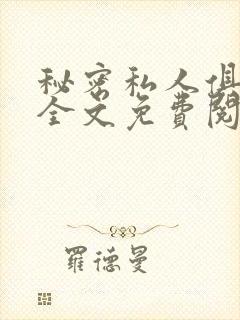 秘密私人俱
全文免費閱
羅德曼